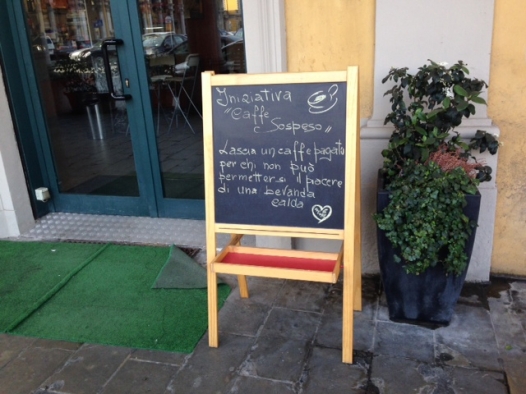 Iniziativa
"Caffè
Sospeso"
Lascia un caffè pagato
per chi non può
permettersi il piacere
di una bevanda
calda